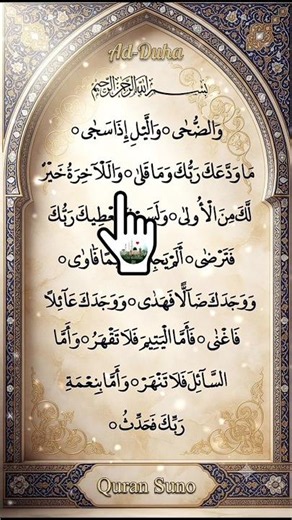 Ad-Duha
بِسْمِ اللهِ الرَّحْمٰنِ الرَّحِيْمِ
وَالضُّحٰى ۝ وَالَّيْلِ اِذَا سَجٰى ۝
مَا وَدَّعَكَ رَبُّكَ وَمَا قَلٰى ۝ وَلَلْاٰخِرَةُ خَيْرٌ
لَّكَ مِنَ الْاُوْلٰى ۝ يُعْطِيْكَ رَبُّكَ
فَتَرْضٰى ۝ فَاٰوٰى ۝
وَوَجَدَكَ ضَآلًّا فَهَدٰى ۝ وَوَجَدَكَ عَآئِلًا
فَاَغْنٰى ۝ فَاَمَّا الْيَتِيْمَ فَلَا تَقْهَرْ ۝ وَاَمَّا
السَّآئِلَ فَلَا تَنْهَرْ ۝ وَاَمَّا بِنِعْمَةِ
رَبِّكَ فَحَدِّثْ ۝
Quran Suno